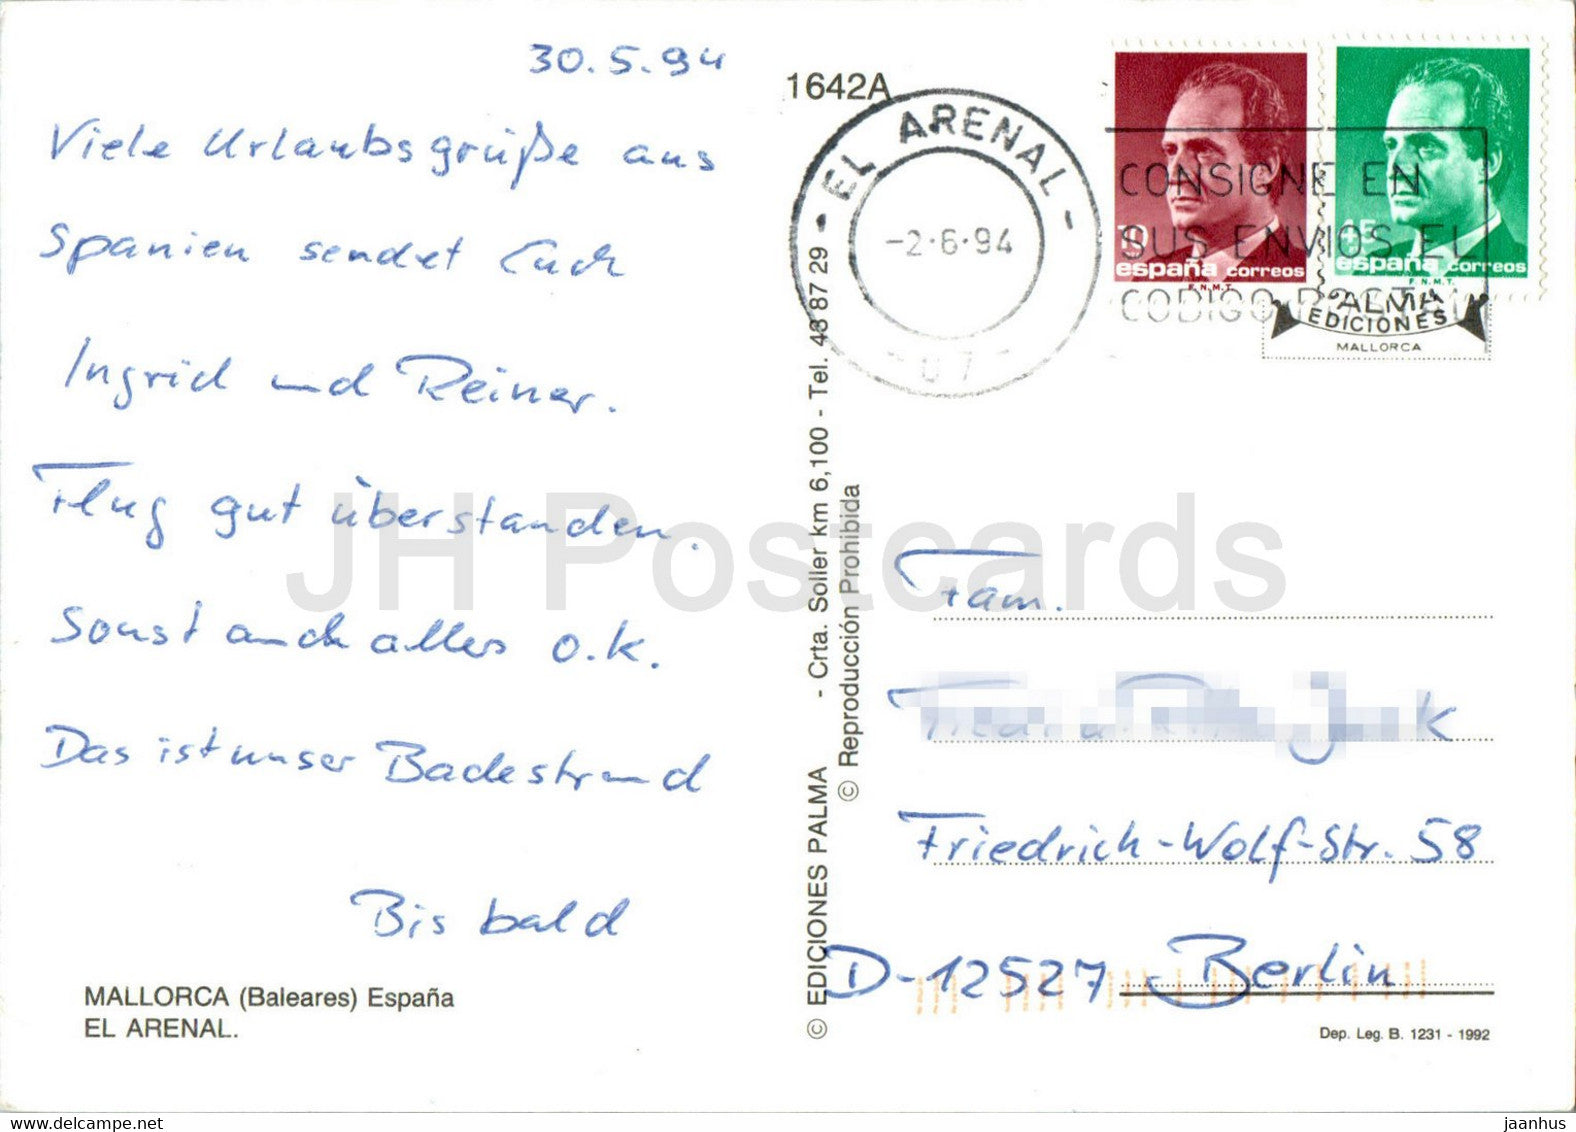 30.5.94
Viele Urlaubsgrüße aus
Spanien sendet Euch
Ingrid und Reiner.
Flug gut überstanden.
Sonst auch alles o.k.
Das ist unser Badestrand
Bis bald
MALLORCA (Baleares) España
EL ARENAL.
1642A
© EDICIONES PALMA - Crta. Soller km 6,100 - Tel. 43 87 29
© Reproducción Prohibida
- EL ARENAL -
-2·6·94
07
CONSIGNE EN
SUS ENVIOS EL
CODIGO POSTAL
10
españa correos
F.N.M.T.
45
españa correos
F.N.M.T.
PALMA
EDICIONES
MALLORCA
Fam.
Friedrich-Wolf-Str. 58
D-12527 Berlin
Dep. Leg. B. 1231 - 1992
JH Postcards
delcampe.net
jaanhus